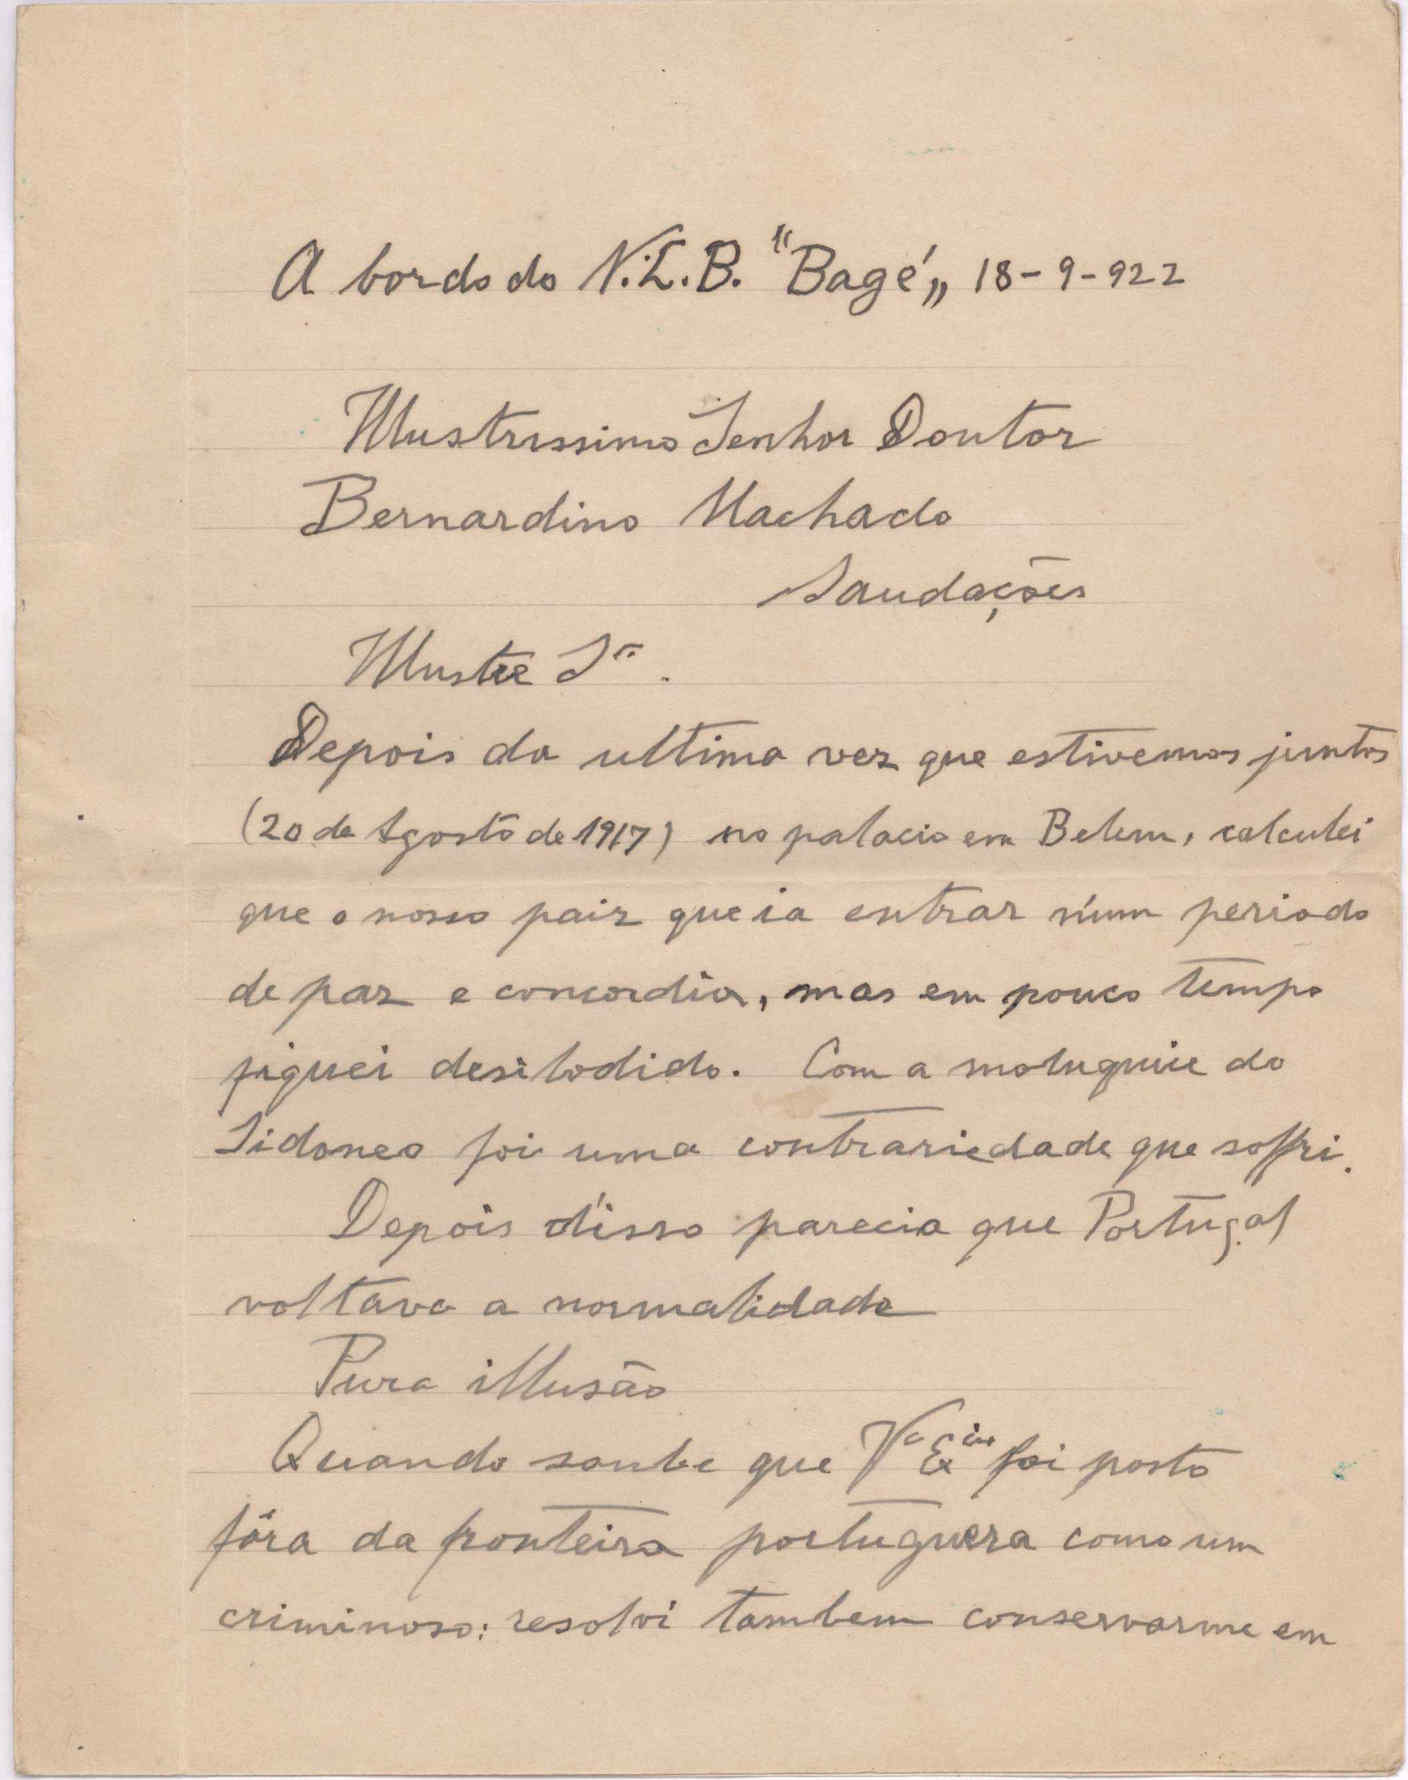 A bordo do N.L.B. "Bagé„ 18-9-922
Illustrissimo Senhor Doutor
Bernardino Machado
Saudações
Illustre Sr.
Depois da ultima vez que estivemos juntos
(20 de Agosto de 1917) no palacio em Belem, calculei
que o nosso paiz que ia entrar n'um periodo
de paz e concordia, mas em pouco tempo
fiquei desilodido. Com a do
Sidoneo foi uma contrariedade que soffri.
Depois d'isso parecia que Portugal
voltava a normalidade
Pura illusão
Quando soube que Va Exia foi posto
fóra da fronteira portugueza como um
criminoso: resolvi tambem conservarme em